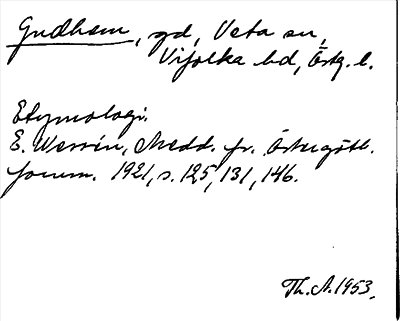 Gudhem, gd, Veta sn,
Vifolka hd, Östg. l.
Etymologi.
E. Wessén, Medd. fr. Östergötl.
fornm. 1921, s. 125, 131, 146.
Th. A. 1953.